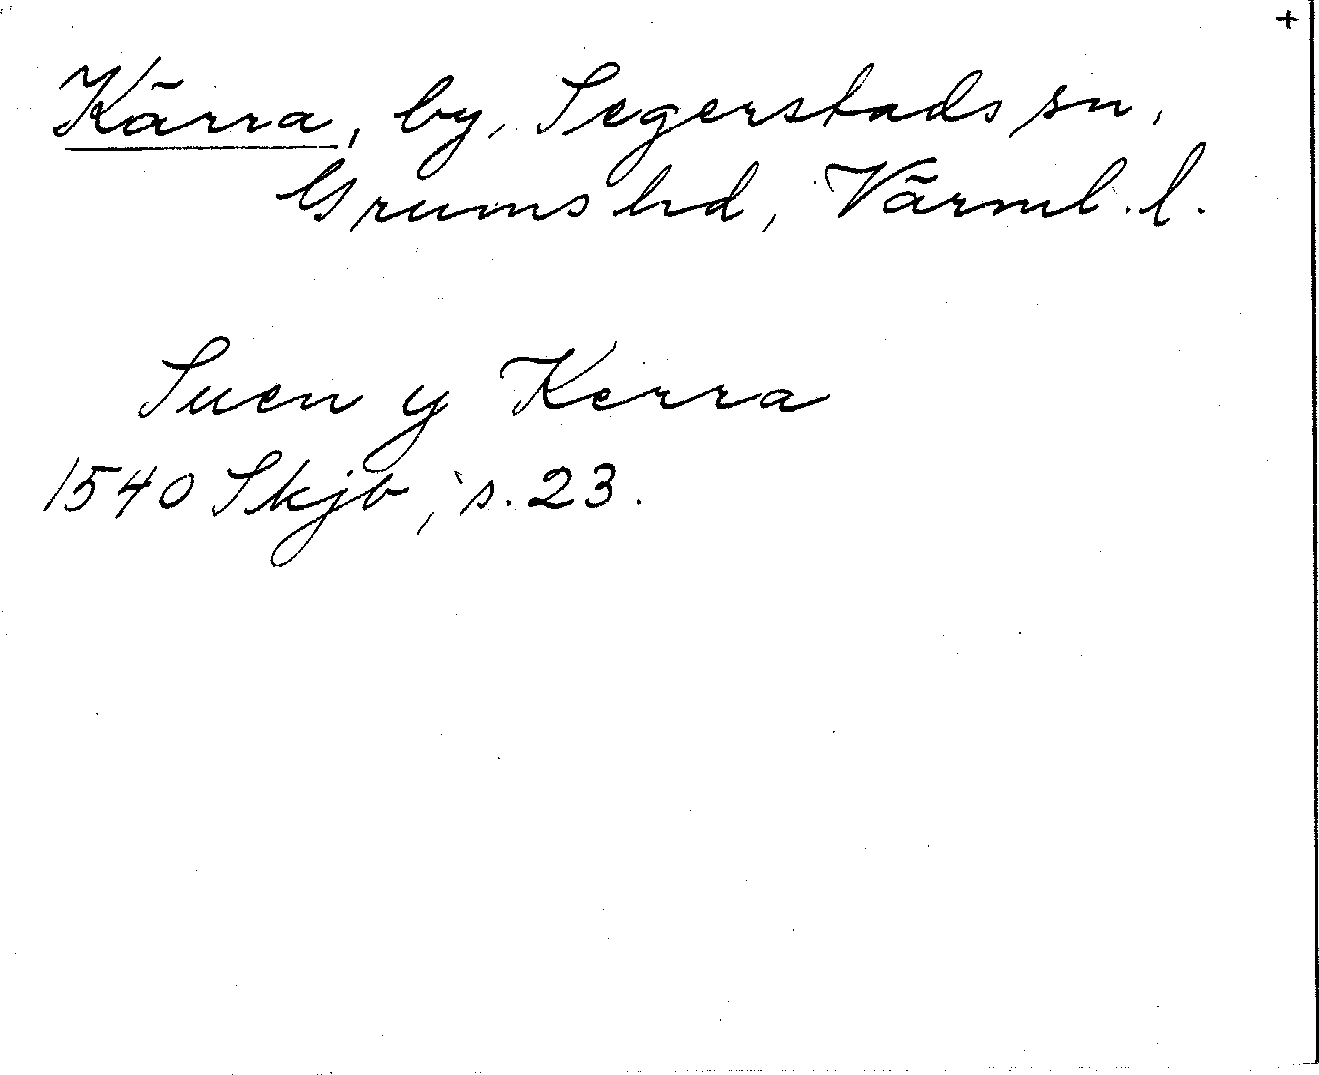 +
Kärra, by, Segerstads sn,
Grums hd, Värml. l.
Suen y Kerra
1540 Skjb, s. 23.